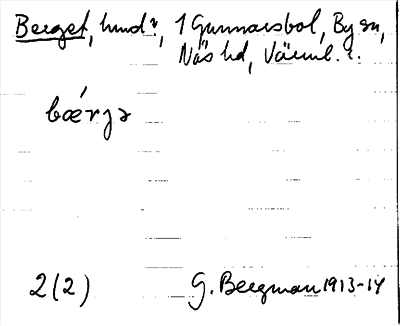 Berget, hmd?, 1 Gunnarsbol, By sn,
Näs hd, Värml. l.
bǽrjə
2(2)
G. Bergman 1913-14